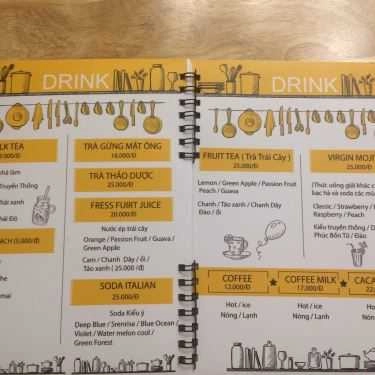 DRINK
LK TEA
TRÀ GỪNG MẬT ÔNG
18,000/Đ
TRÀ THẢO DƯỢC
25.000/Đ
FRESS FUIRT JUICE
20.000/Đ
Nước ép trái cây
Orange / Passion Fruit / Guava /
Green Apple
Cam / Chanh Dây / ổi /
Táo xanh ( 25.000 /đ)
SODA ITALIAN
25.000/Đ
Soda Kiểu ý
Deep Blue / Srenrise / Blue Ocean /
Violet / Water melon cool /
Green Forest
DRINK
FRUIT TEA ( Trà Trái Cây )
25.000/Đ
Lemon / Green Apple / Passion Fruit
Peach / Guava
Chanh / Táo xanh / Chanh Dây
Đào / ổi
VIRGIN MOJIT
25.000/Đ
(Thức uống giải khác c
bạc hà và soda các mù
Classic / Strawberry / B
Raspberry / Peach
Kiểu truyền thống / D
Phúc Bồn Tử / Đào
COFFEE
12,000/Đ
Hot / ice
Nóng / Lạnh
COFFEE MILK
17,000/Đ
Hot / ice
Nóng / Lạnh
CACA
22
Hot
Nón